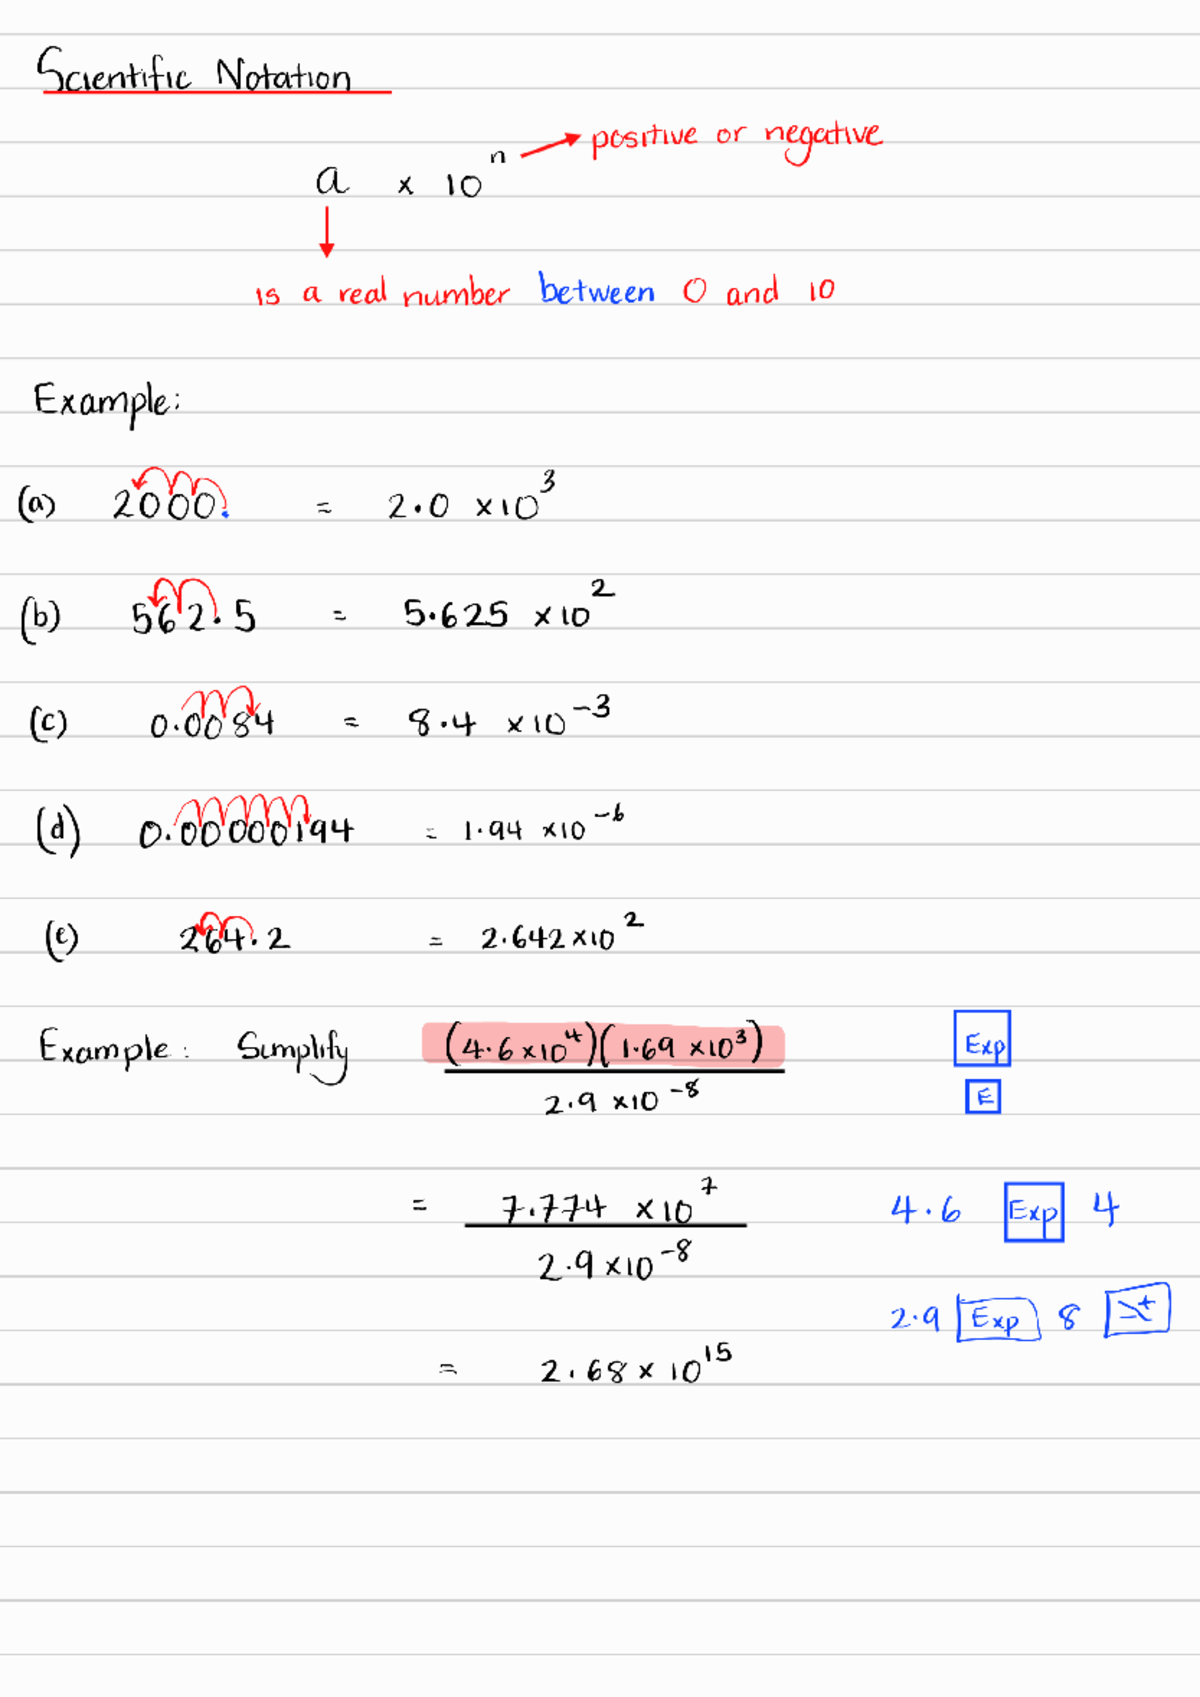 Scientific Notation
a × 10ⁿ → positive or negative
↓
is a real number between 0 and 10
Example:
(a) 2000. = 2.0 ×10³
(b) 562.5 = 5.625 ×10²
(c) 0.0084 = 8.4 ×10⁻³
(d) 0.00000194 = 1.94 ×10⁻⁶
(e) 264.2 = 2.642×10²
Example: Simplify (4.6×10⁴)(1.69 ×10³) Exp
2.9 ×10⁻⁸ E
= 7.774 ×10⁷ 4.6 Exp 4
2.9×10⁻⁸
2.9 Exp 8
= 2.68 × 10¹⁵